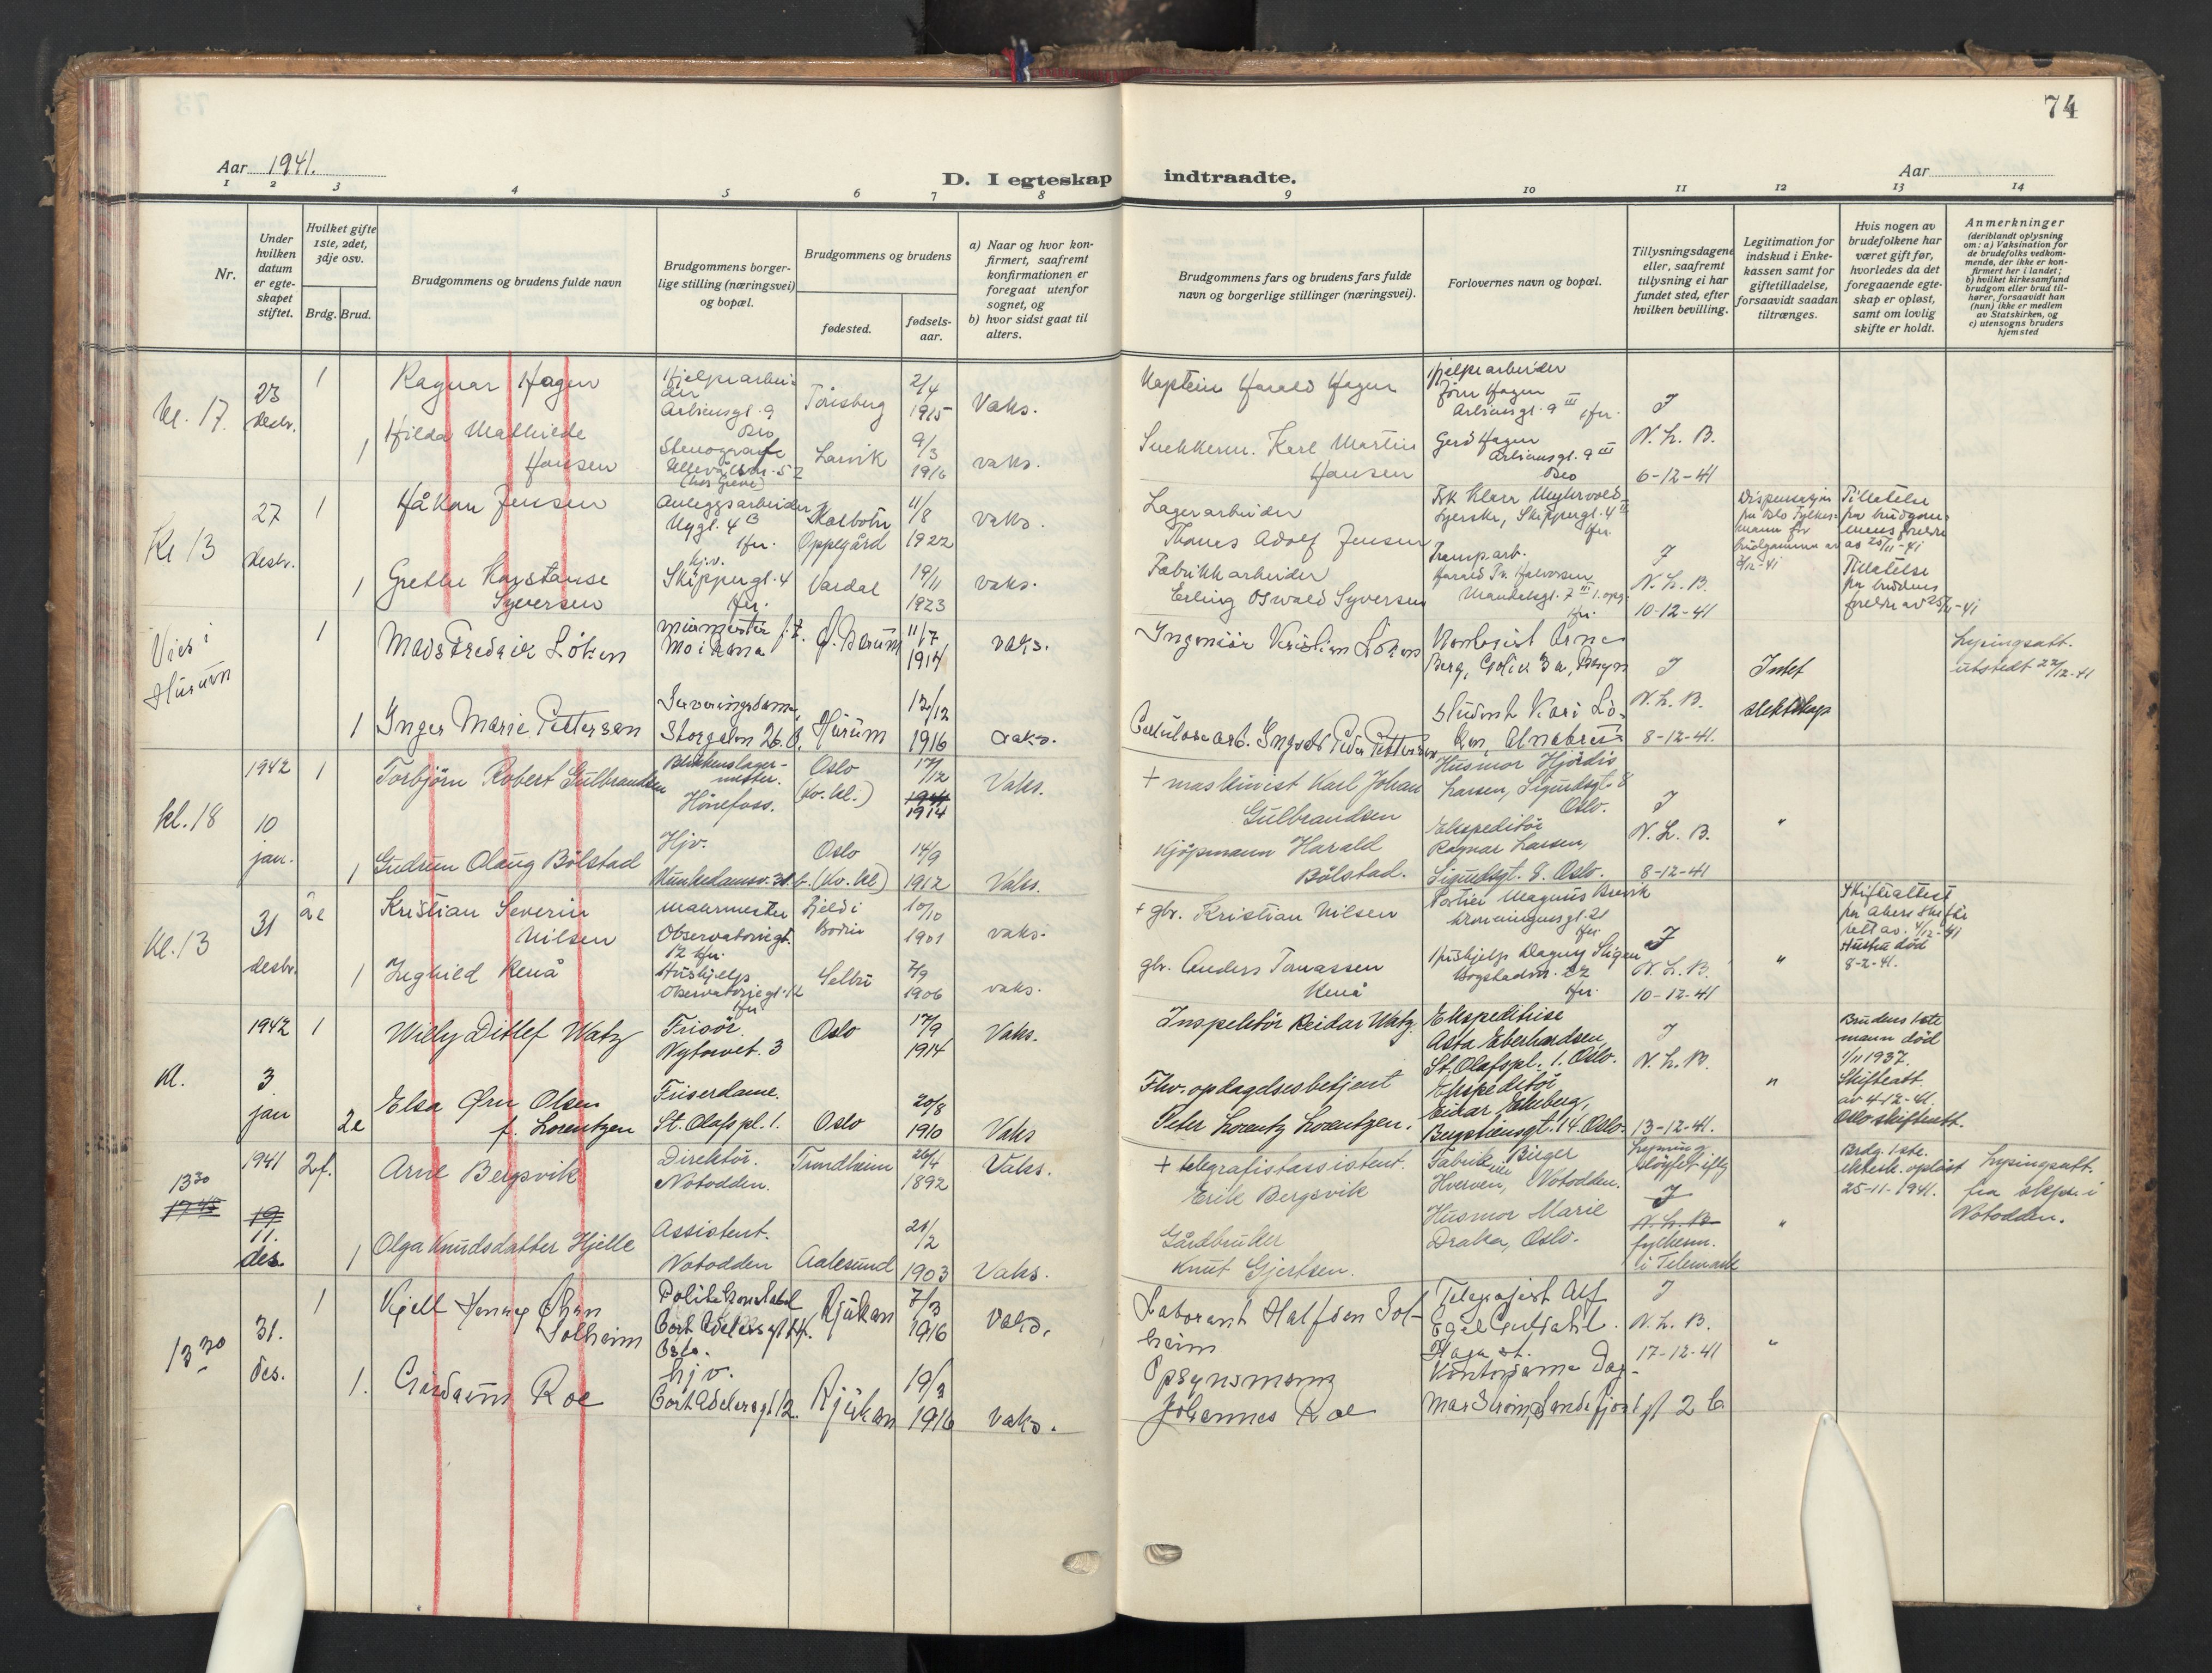 74
Aar 1941.
D. I egteskap indtraadte.
Aar
1 2 3 4 5 6 7 8 9 10 11 12 13 14
Nr.
Under
hvilken
datum
er egte-
skapet
stiftet.
Hvilket gifte
1ste, 2det,
3dje osv.
Brdg. Brud.
Brudgommens og brudens fulde navn
Brudgommens borger-
lige stilling (næringsvei)
og bopæl.
Brudgommens og brudens
fødested.
fødsels-
aar.
a) Naar og hvor kon-
firmert, saafremt
konfirmationen er
foregaat utenfor
sognet, og
b) hvor sidst gaat til
alters.
Brudgommens fars og brudens fars fulde
navn og borgerlige stillinger (næringsvei).
Forlovernes navn og bopæl.
Tillysningsdagene
eller, saafremt
tillysning ei har
fundet sted, efter
hvilken bevilling.
Legitimation for
indskud i Enke-
kassen samt for
giftetilladelse,
forsaavidt saadan
tiltrænges.
Hvis nogen av
brudefolkene har
været gift før,
hvorledes da det
foregaaende egte-
skap er opløst,
samt om lovlig
skifte er holdt.
Anmerkninger
(deriblandt oplysning
om: a) Vaksination for
de brudefolks vedkom-
mende, der ikke er kon-
firmert her i landet;
b) hvilket kirkesamfund
brudgom eller brud til-
hører, forsaavidt han
(hun) ikke er medlem
av Statskirken, og
c) utensogns bruders
hjemsted
kl. 17.
23
desbr.
1
Ragnar Hagen
Hjelpearbei-
der
Arbinsgt. 9
Oslo
Tönsberg
2/4
1915
Vaks.
Kaptein Harald Hagen
Hjelpearbeider
Jörn Hagen
Arbinsgt. 9 III
J
1
Hilda Mathilde
Hansen
Stenograf
Larvik
9/3
1916
vaks.
Karl Martin
Hansen
Gerd Hagen
Arbinsgt. 9 III
Oslo
N. L. B.
6-12-41
Kl 13
27
desbr.
1
Håkon Jensen
Anleggsarbeider
Nygt. 4 B
Kolbotn
Oppegård
11/8
1922
vaks.
Lagerarbeider
Thomas Adolf Jensen
Skippergt. 4
Dispensasjon
fra Oslo Fylkes-
mann for
brudgommen av
Tillatelse
fra brudgom-
mens foreldre
av 25/11-41
1
Grethe Konstanse
Syversen
hjv.
Skippergt. 4
Vardal
19/11
1923
vaks.
Fabrikkarbeider
Erling Oswald Syversen
Transp.arb.
Harald Th. Halvorsen
Mandalsgt. 7 III
J
N. L. B.
10-12-41
Tillatelse
fra brudens
foreldre av 25/11-41
Vies i
Hurum
1
Mads Fredrik Löken
Mo i Rana
Ö. Bærum
11/7
1914
vaks.
Ingeniör Kristian Löken
Arne
Berg,
J
Intet
slektskap
Lysingsatt.
utstedt 22/12-41
1
Inger Marie Pettersen
Serveringsdame,
Storgaten 26. B,
Hurum
12/12
1916
vaks.
Cellulosearb. Ingvald Peder Pettersen
Student Kari Lö-
ken, Alnabru
N. L. B.
8-12-41.
kl. 18
1942
10
jan.
1
Torbjörn Robert Gulbrandsen
Blikkenslager-
mester.
Hönefoss.
Oslo
(Kv. kl.)
17/12
1911
1914
Vaks.
+ maskinist Karl Johan
Gulbrandsen
Husmor Hjördis
Larsen, Sigurdsgt. 8
Oslo.
J
"
1
Gudrun Olaug Bölstad
Hjv.
Munkedamsv.
Oslo
(Kv. kl)
14/9
1912
Vaks.
Kjöpmann Harald
Bölstad.
Ekspeditör
Ragnar Larsen,
Sigurdsgt. 8. Oslo.
N. L. B.
8-12-41
Kl. 13
31
desbr.
2e
Kristian Severin
Nilsen
Malermester
Observatoriegt.
12
10/10
1901
vaks.
+ gbr. Kristian Nilsen
Portier Magnus Brevik
Dronningensgt. 21
J
Skifteattest
fra Akers skifte
rett av. 4/12-41
Hustru död
8-2-41.
1
Inghild Renå
Hushjelp
Observatoriegt. 12
Selbu
7/9
1906
vaks.
gbr. Anders Tomassen
Renå
Hushjelp Dagny
Bogstadvn. 22
N. L. B.
10-12-41
"
Kl.
1942
3
jan
1
Willy Ditlef Watz
Frisör.
Nytorvet. 3
Oslo
17/9
1914
Vaks.
Inspektör Reidar Watz.
Ekspeditrise
Asta Eberhardsen,
St. Olafspl. 1. Oslo.
J
N. L. B.
Brudens 1ste
mann död
1/11 1937.
Skifteatt.
av 4-12-41.
Oslo skifterett.
2e
Elsa Ørn Olsen
f. Lorentzen
Friserdame.
St. Olafs pl. 1.
Oslo
20/8
1910
Vaks
Fhv. opdagelsesbetjent
Peter Lorentz Lorentzen.
Ekspeditör
Einar Ekeberg,
Bergsliensgt. 14. Oslo.
13-12-41.
"
13 30
17 45
1941
19
11.
des
2f.
Arne Bergsvik
Direktör.
Notodden.
Trondheim
26/4
1892
Vaks.
+ telegrafistassistent.
Erik Bergsvik
Birger
Hverven, Notodden.
Lysning
slöyfet iflg
J
N. L. B.
fylkesm.
i Telemark
Brdg. 1ste.
ektesk. oplöst
25-11-1941.
Lysingsatt.
fra sokpr. i
Notodden.
1
Olga Knudsdatter Hjelle
Assistent.
Notodden
Aalesund
21/2
1903
Vaks.
Gårdbruker
Knut Gjertsen.
Husmor Marie
Draka, Oslo.
"
13 30
31.
des.
1
Kjell Henry Johan
Solheim
Politikonstabel
Cort Adelersgt 14.
Oslo.
Rjukan
7/3
1916
Vaks.
Laborant Halfdan Sol-
heim
Telegrafist Alf
Egel
Haga st.
J
N. L. B.
17-12-41
"
1.
Gudrun Roe
hjv.
Cort Adelersgt 12.
Rjukan
19/3
1916
vaks.
Opsynsmann
Johannes Roe
Kontordame Dag-
mar Ström, Sandefjordgt 2 b